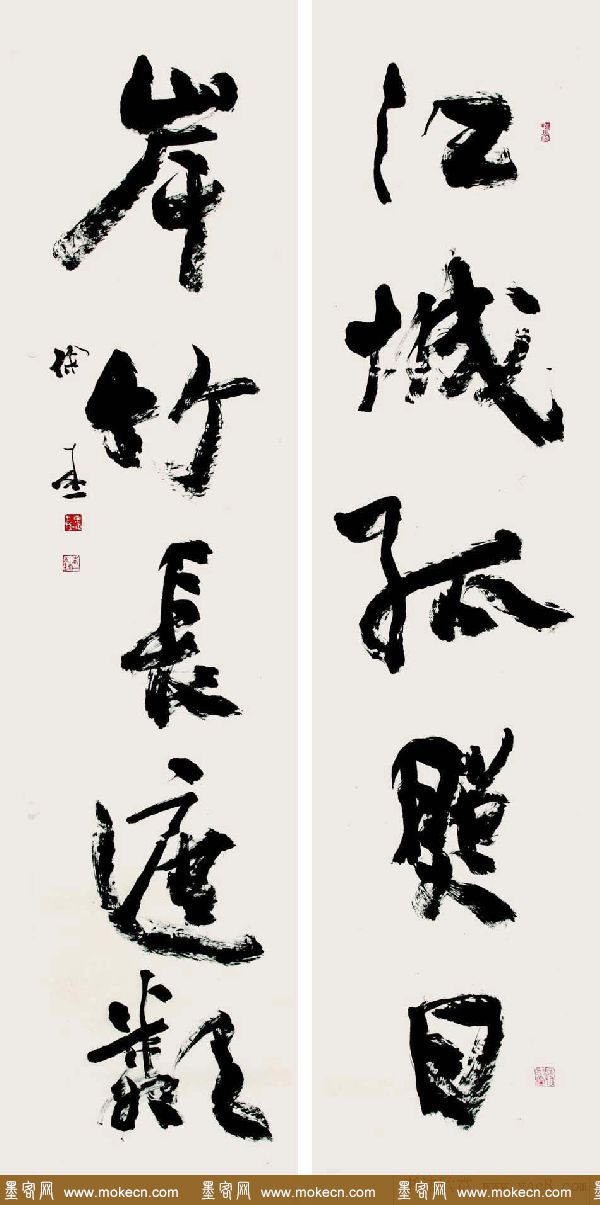 江城孤照日
岸竹長遮
墨客网 www.mokecn.com 墨客网 www.mokecn.com 墨客网 www.mokecn.com 墨客网